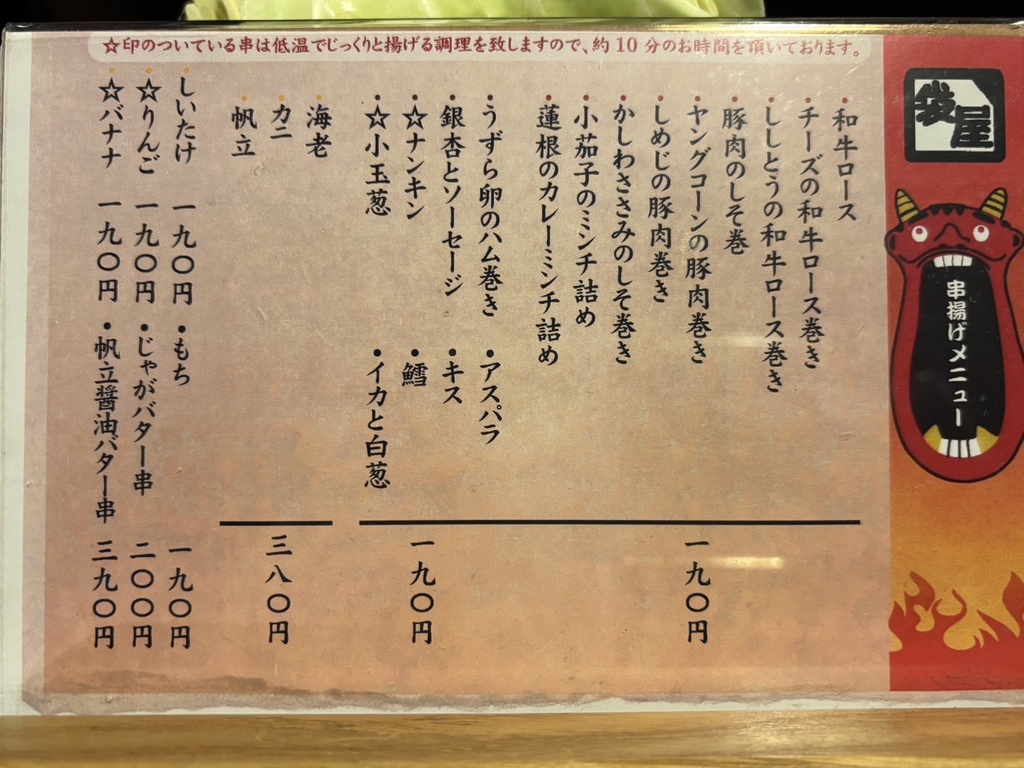 ☆印のついている串は低温でじっくりと揚げる調理を致しますので、約10分のお時間を頂いております。
袋屋
串揚げメニュー
・和牛ロース
・チーズの和牛ロース巻き
・ししとうの和牛ロース巻き
・豚肉のしそ巻
・ヤングコーンの豚肉巻き
・しめじの豚肉巻き
・かしわささみのしそ巻き
・小茄子のミンチ詰め
・蓮根のカレーミンチ詰め
一九〇円
・うずら卵のハム巻き ・アスパラ
・銀杏とソーセージ ・キス
・☆ナンキン ・鱈
・☆小玉葱 ・イカと白葱
一九〇円
・海老
・カニ
・帆立
三八〇円
・しいたけ 一九〇円 ・もち 一九〇円
・☆りんご 一九〇円 ・じゃがバター串 二〇〇円
・☆バナナ 一九〇円 ・帆立醤油バター串 三九〇円